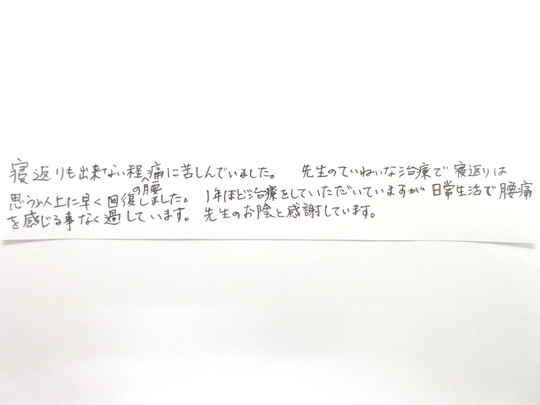 寝返りも出来ない程の腰痛に苦しんでいました。 先生のていねいな治療で寝返りは
思う以上に早く回復しました。 1年ほど治療をしていただいていますが日常生活で腰痛
を感じる事なく過しています。 先生のお陰と感謝しています。